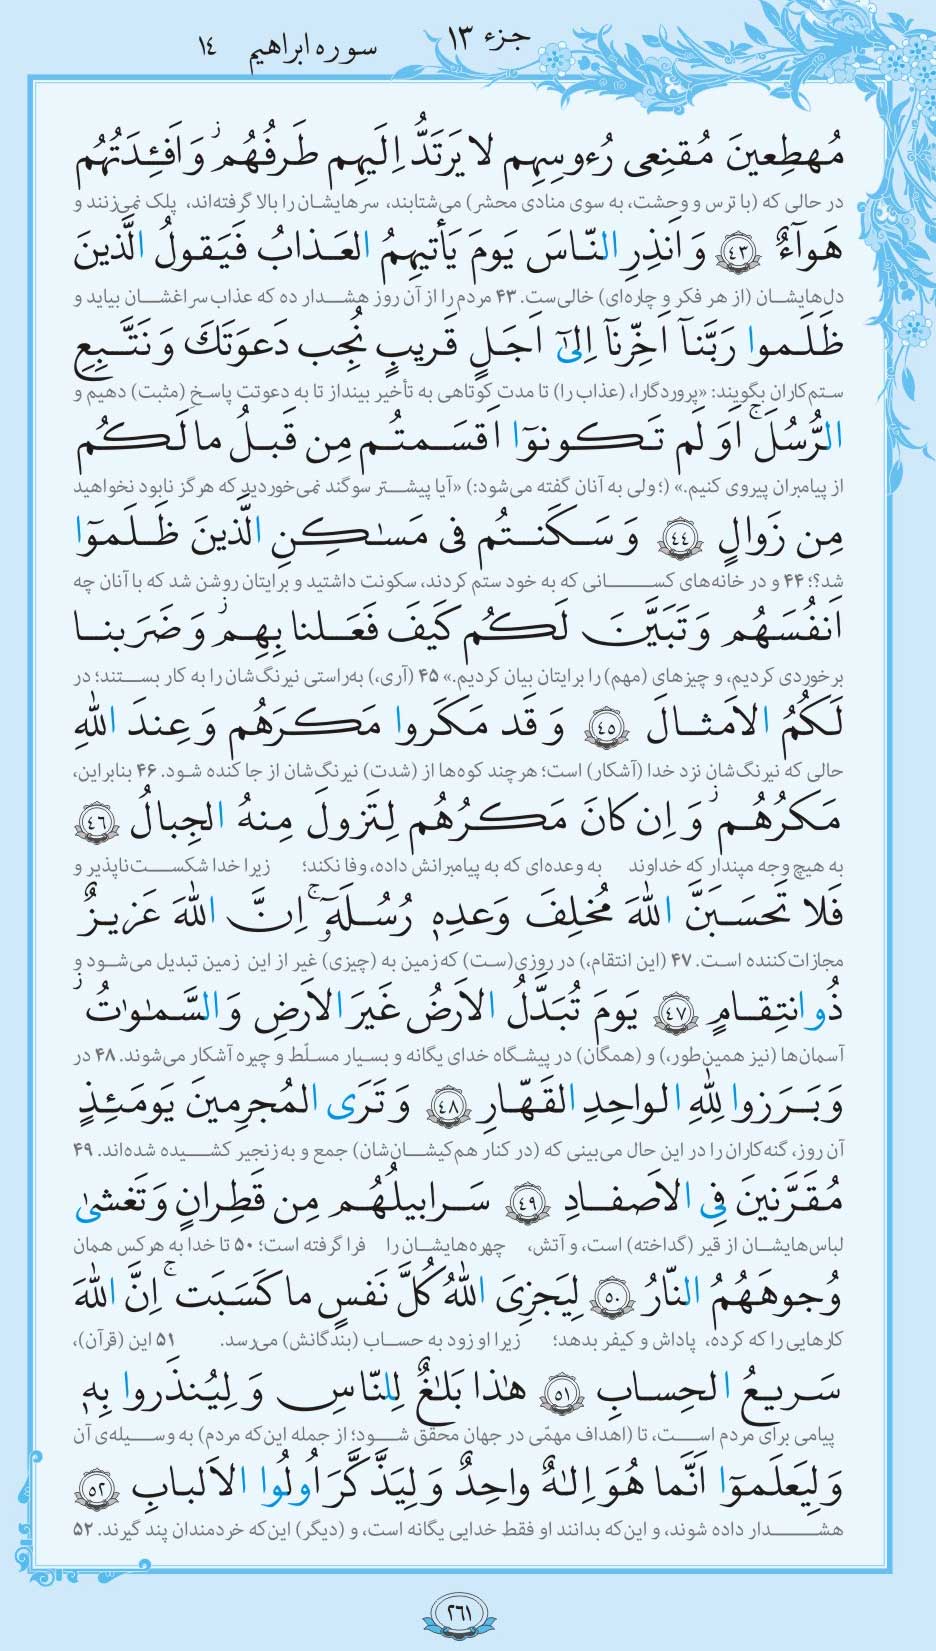 جزء ۱۳
سوره ابراهیم ۱٤
مُهطِعینَ مُقنِعی رُءوسِهِم لا یَرتَدُّ اِلَیهِم طَرفُهُم ۖ وَ اَفـِٔدَتُهُم
در حالی که (با ترس و وحشت، به سوی منادی محشر) می‌شتابند، سرهایشان را بالا گرفته‌اند، پلک نمی‌زنند و
هَوآءٌ ﴿٤٣﴾ وَ اَنذِرِ النّاسَ یَومَ یَأتیهِمُ العَذابُ فَیَقولُ الَّذینَ
دل‌هایشان (از هر فکر و چاره‌ای) خالی‌ست. ۴۳ مردم را از آن روز هشدار ده که عذاب سراغشان بیاید و
ظَلَموا رَبَّنآ اَخِّرنآ اِلیٰٓ اَجَلٍ قَریبٍ نُجِب دَعوَتَكَ وَ نَتَّبِعِ
ستم‌کاران بگویند: «پروردگارا، (عذاب را) تا مدت کوتاهی به تأخیر بینداز تا به دعوتت پاسخ (مثبت) دهیم و
الرُّسُلَ ۗ اَوَ لَم تَکونوٓا اَقسَمتُم مِن قَبلُ ما لَکُم
از پیامبران پیروی کنیم.» (؛ ولی به آنان گفته می‌شود:) «آیا پیشتر سوگند نمی‌خوردید که هرگز نابود نخواهید
مِن زَوالٍ ﴿٤٤﴾ وَ سَکَنتُم فی مَسـٰکِنِ الَّذینَ ظَلَموٓا
شد؟؛ ۴۴ و در خانه‌های کسانی که به خود ستم کردند، سکونت داشتید و برایتان روشن شد که با آنان چه
اَنفُسَهُم وَ تَبَیَّنَ لَکُم کَیفَ فَعَلنا بِهِم ۖ وَ ضَرَبنا
برخوردی کردیم، و چیزهای (مهم) را برایتان بیان کردیم.» ۴۵ (آری،) به‌راستی نیرنگ‌شان را به کار بستند؛ در
لَکُمُ الاَمثالَ ﴿٤٥﴾ وَ قَد مَکَروا مَکرَهُم وَ عِندَ اللّٰهِ
حالی که نیرنگ‌شان نزد خدا (آشکار) است؛ هرچند کوه‌ها از (شدت) نیرنگ‌شان از جا کنده شود. ۴۶ بنابراین،
مَکرُهُم ۖ وَ اِن کانَ مَکرُهُم لِتَزولَ مِنهُ الجِبالُ ﴿٤٦﴾
به هیچ وجه مپندار که خداوند به وعده‌ای که به پیامبرانش داده، وفا نکند؛ زیرا خدا شکست‌ناپذیر و
فَلا تَحسَبَنَّ اللّٰهَ مُخلِفَ وَعدِهٖ رُسُلَهٗٓ ۗ اِنَّ اللّٰهَ عَزیزٌ
مجازات‌کننده است. ۴۷ (این انتقام،) در روزی(ست) که زمین به (چیزی) غیر از این زمین تبدیل می‌شود و
ذُو انتِقامٍ ﴿٤٧﴾ یَومَ تُبَدَّلُ الاَرضُ غَیرَ الاَرضِ وَ السَّمـٰوٰتُ ۖ
آسمان‌ها (نیز همین‌طور،) و (همگان) در پیشگاه خدای یگانه و بسیار مسلّط و چیره آشکار می‌شوند. ۴۸ در
وَ بَرَزوا لِلّٰهِ الواحِدِ القَهّارِ ﴿٤٨﴾ وَ تَرَی المُجرِمینَ یَومَئِذٍ
آن روز، گنه‌کاران را در این حال می‌بینی که (در کنار هم‌کیشان‌شان) جمع و به زنجیر کشیده شده‌اند. ۴۹
مُقَرَّنینَ فِی الاَصفادِ ﴿٤٩﴾ سَرابیلُهُم مِن قَطِرانٍ وَ تَغشیٰ
لباس‌هایشان از قیر (گداخته) است، و آتش، چهره‌هایشان را فرا گرفته است؛ ۵۰ تا خدا به هرکس همان
وُجوهَهُمُ النّارُ ﴿٥٠﴾ لِیَجزِیَ اللّٰهُ کُلَّ نَفسٍ ما کَسَبَت ۚ اِنَّ اللّٰهَ
کارهایی را که کرده، پاداش و کیفر بدهد؛ زیرا او زود به حساب (بندگانش) می‌رسد. ۵۱ این (قرآن)،
سَریعُ الحِسابِ ﴿٥١﴾ هٰذا بَلـٰغٌ لِلنّاسِ وَ لِیُنذَروا بِهٖ
پیامی برای مردم است، تا (اهداف مهمّی در جهان محقق شود؛ از جمله این‌که مردم) به وسیله‌ی آن
وَ لِیَعلَموٓا اَنَّما هُوَ اِلـٰهٌ واحِدٌ وَ لِیَذَّکَّرَ اُولُوا الاَلبابِ ﴿٥٢﴾
هشدار داده شوند، و این‌که بدانند او فقط خدایی یگانه است، و (دیگر) این‌که خردمندان پند گیرند. ۵۲
۲۶۱